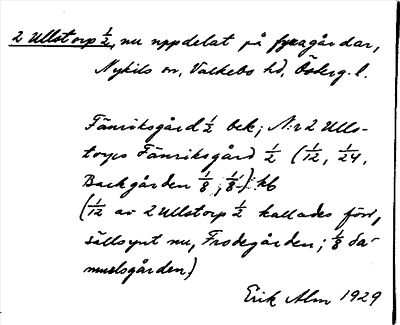 2 Ullstorp 1/2, nu uppdelat på fyra gårdar,
Nykils sn, Valkebo hd, Österg. l.
Fänriksgård 1/2 bek; N:r 2 Ulls-
torps Fänriksgård 1/2 (1/12, 1/24,
Backgården 1/8, 1/8) : kb
(1/12 av 2 Ullstorp 1/2 kallades förr,
sällsynt nu, Frodegården; 1/8 Sa-
muelsgården)
Erik Alm 1929